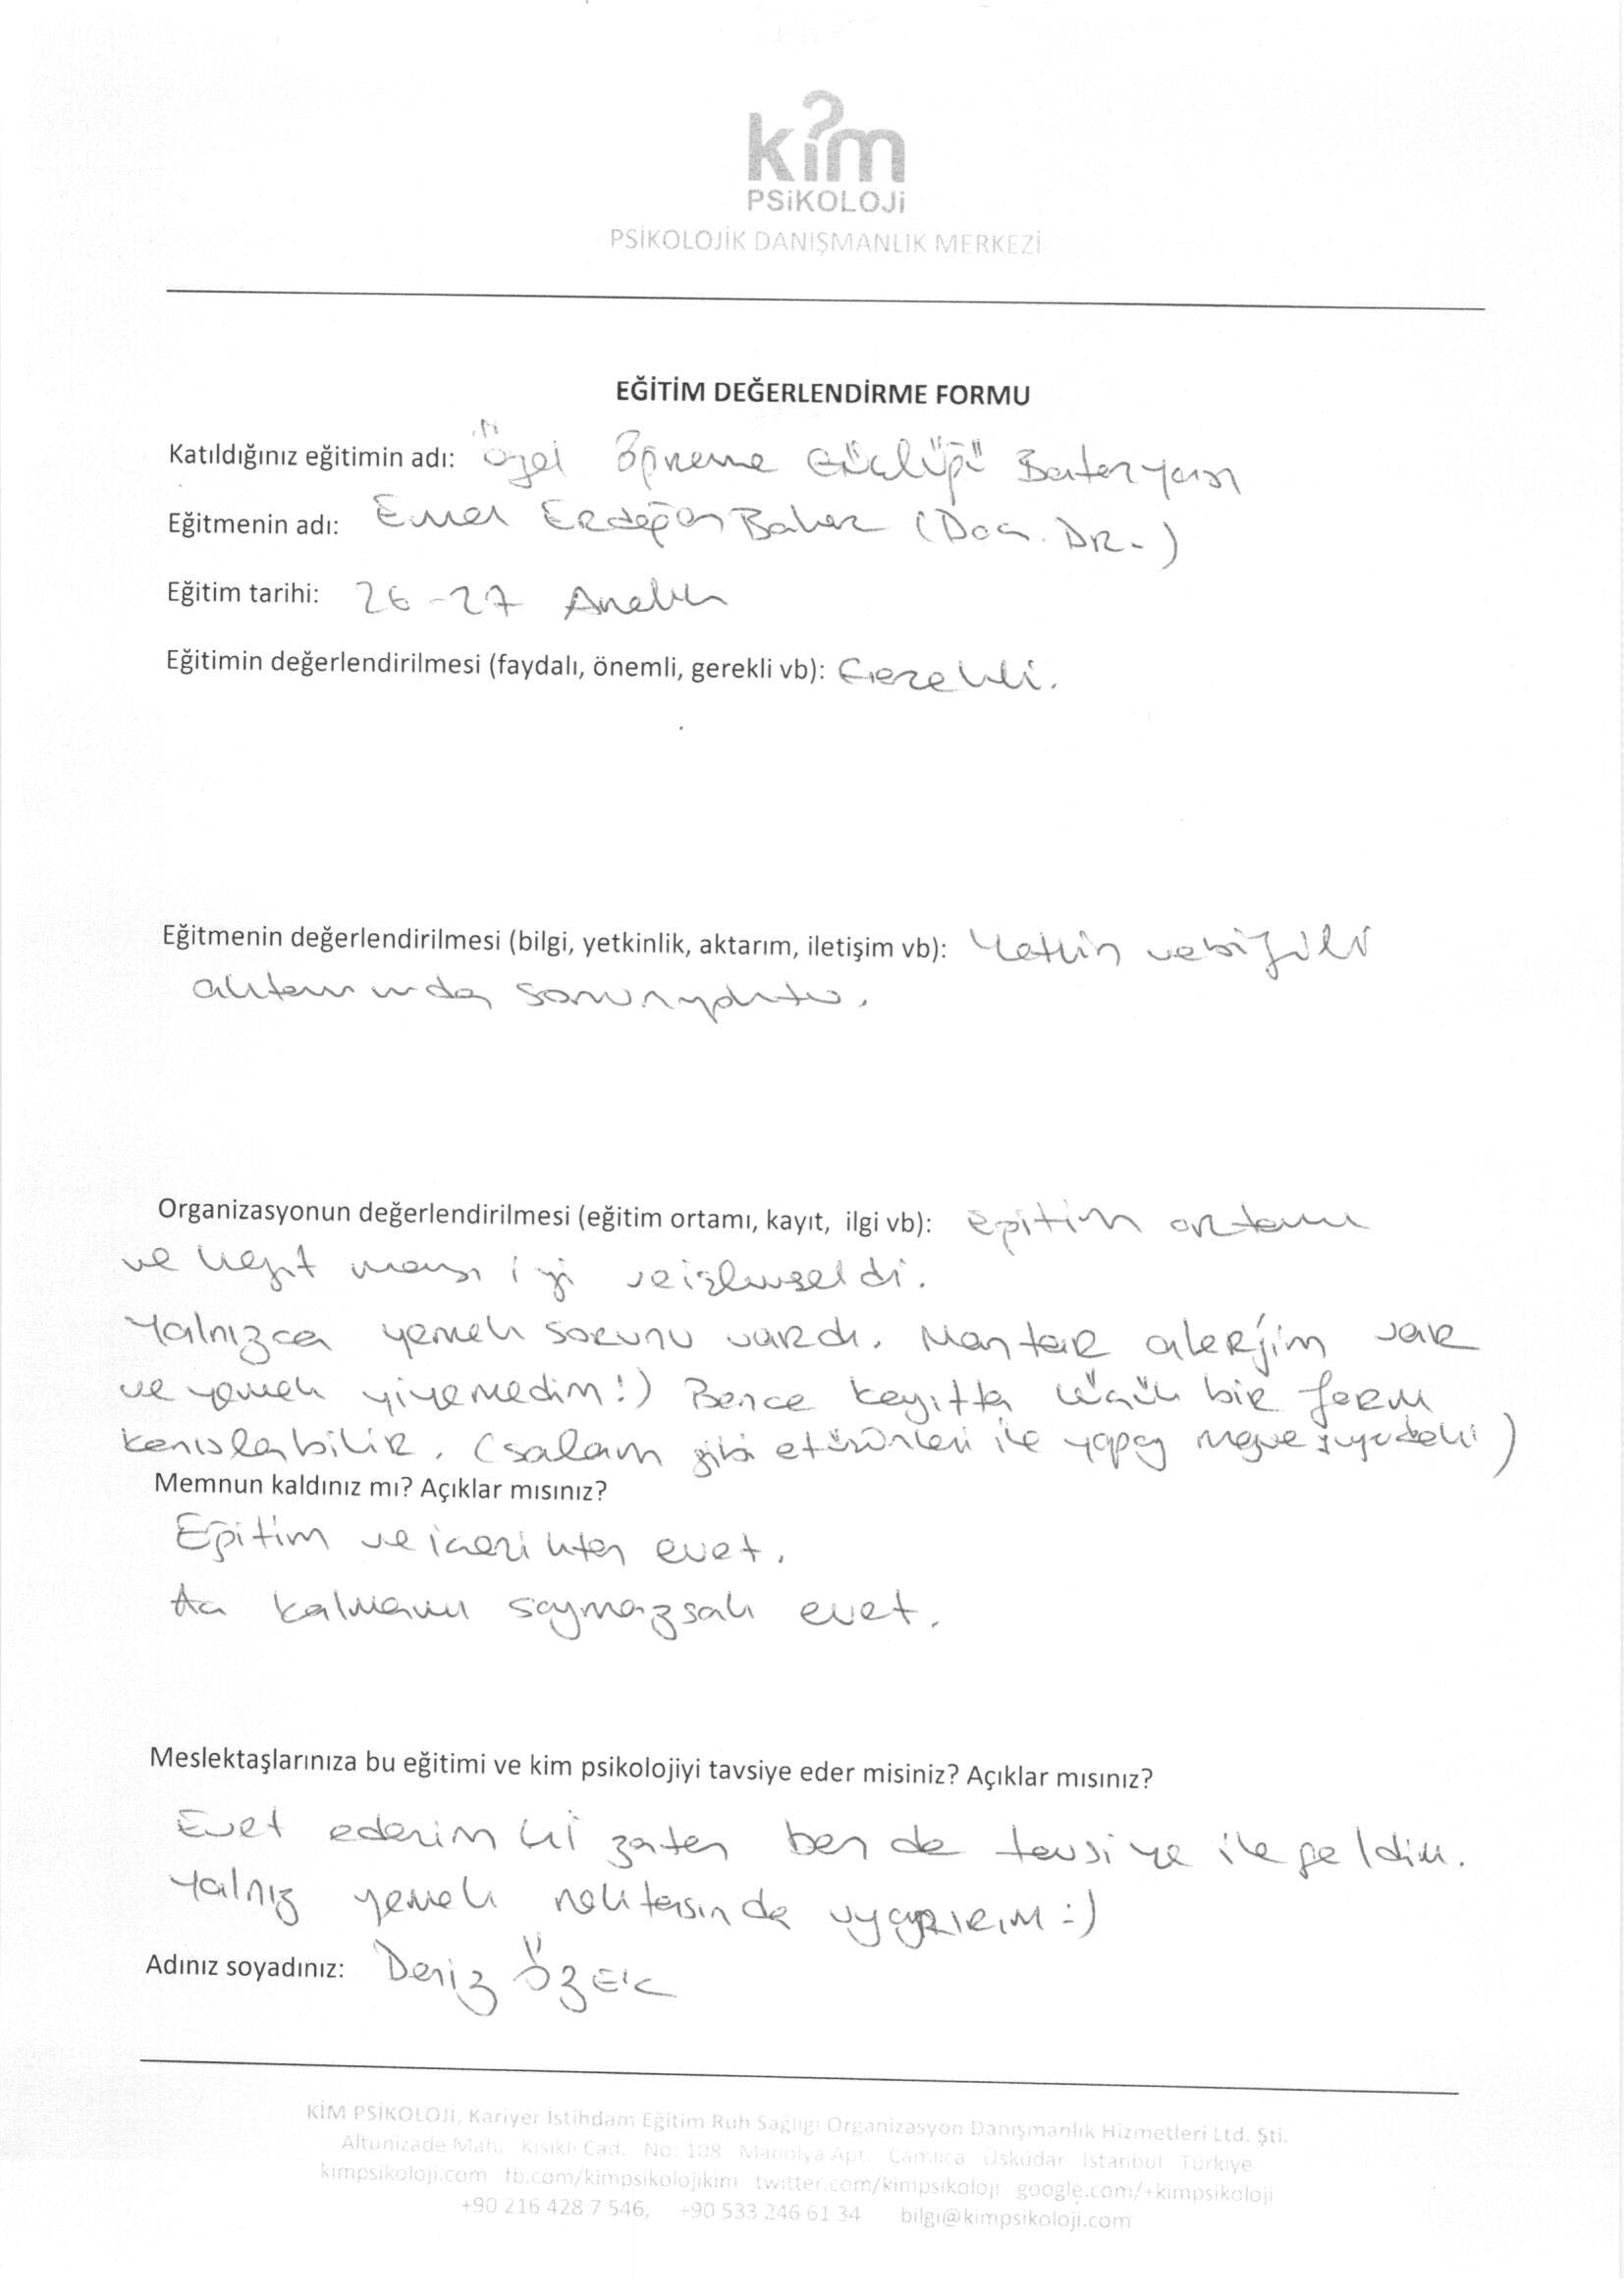 kim
PSiKOLOJi
PSİKOLOJİK DANIŞMANLIK MERKEZİ
EĞİTİM DEĞERLENDİRME FORMU
Katıldığınız eğitimin adı: Özel Öğrenme Güçlüğü Bataryası
Eğitmenin adı: Emel Erdoğan Bakar (Doç. DR.)
Eğitim tarihi: 26-27 Aralık
Eğitimin değerlendirilmesi (faydalı, önemli, gerekli vb): Gerekli.
Eğitmenin değerlendirilmesi (bilgi, yetkinlik, aktarım, iletişim vb): Yetkin ve bilgili
aktarımında sorun yoktu.
Organizasyonun değerlendirilmesi (eğitim ortamı, kayıt, ilgi vb): Eğitim ortamı
ve kayıt iyi ve işlevseldi.
Yalnızca yemek sorunu vardı. Mantar alerjim var
ve yemek yiyemedim:) Bence kayıtta küçük bir form
konulabilir. (salam gibi et ürünleri ile yapay meyve suyu)
Memnun kaldınız mı? Açıklar mısınız?
Eğitim ve içerikten evet.
Aç kalmamı saymazsak evet.
Meslektaşlarınıza bu eğitimi ve kim psikolojiyi tavsiye eder misiniz? Açıklar mısınız?
Evet ederim ki zaten ben de tavsiye ile geldim.
Yalnız yemek noktasında uyarırım :)
Adınız soyadınız: Deniz ÖZEK
KİM PSİKOLOJİ, Kariyer İstihdam Eğitim Ruh Sağlığı Organizasyon Danışmanlık Hizmetleri Ltd. Şti.
Altunizade Mah. Kısıklı Cad. No: 108 Manolya Apt. Çamlıca Üsküdar İstanbul Türkiye
kimpsikoloji.com fb.com/kimpsikolojikim twitter.com/kimpsikoloji google.com/+kimpsikoloji
+90 216 428 7 546, +90 533 246 61 34 bilgi@kimpsikoloji.com